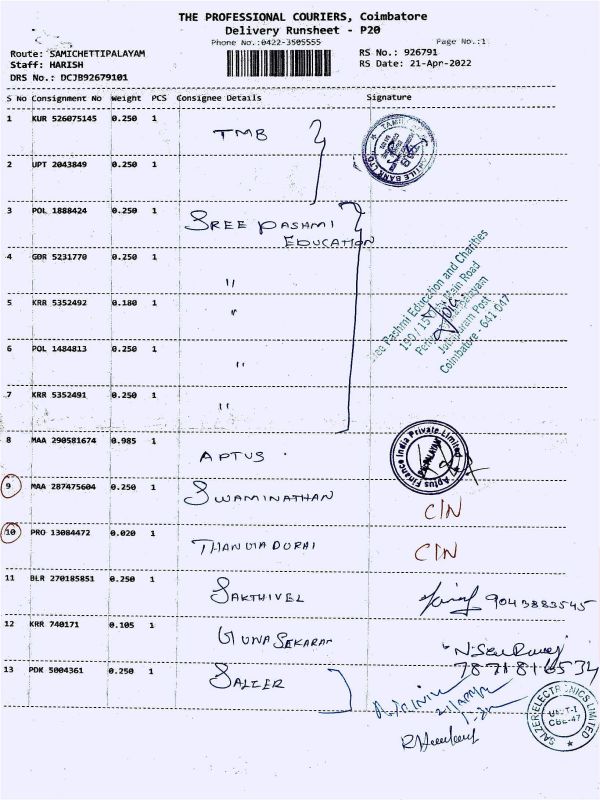 THE PROFESSIONAL COURIERS, Coimbatore
Delivery Runsheet - P20
Phone No.:0422-3505555 Page No.:1
Route: SAMICHETTIPALAYAM RS No.: 926791
Staff: HARISH RS Date: 21-Apr-2022
DRS No.: DCJB92679101
S No Consignment No Weight PCS Consignee Details Signature
1 KUR 526075145 0.250 1 TMB
2 UPT 2043849 0.250 1
3 POL 1888424 0.250 1 SREE PASHMI
EDUCATION
4 GDR 5231770 0.250 1 "
5 KRR 5352492 0.180 1 "
6 POL 1484813 0.250 1 "
7 KRR 5352491 0.250 1 "
Pashmi Education and Charities
Main Road
Post
Coimbatore - 641 047
8 MAA 290581674 0.985 1 APTUS.
Aptus Finance India Private Limited
9 MAA 287475604 0.250 1 SWAMINATHAN C/N
10 PRO 13084472 0.020 1 C/N
11 BLR 270185851 0.250 1 SAKTHIVEL 9043883545
12 KRR 740171 0.105 1 GUNASEKARAN
7871816534
13 PDK 5004361 0.250 1 SALZER
SALZER ELECTRONICS LIMITED
UNIT-I
CBE-47